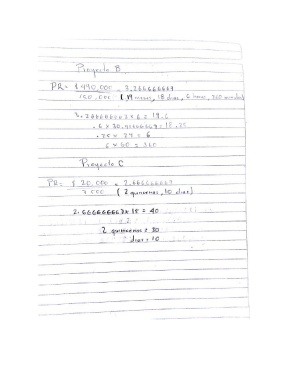 Proyecto B
PR = $ 490,000 = 3.266666667
150,000 ( 19 meses, 18 dias, 6 horas, 360
3.266666667 x 6 = 19.6
.6 x 30.41666667 = 18.25
.25 x 24 = 6
6 x 60 = 360
Proyecto C
PR = $ 20,000 = 2.666666667
7 500 ( 2 quincenas, 10 dias)
2.666666667 x 15 = 40
2 quincenas = 30
dias = 10